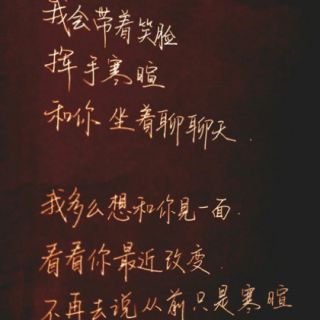 我会带着笑脸
挥手寒暄
和你 坐着聊聊天.
我多么想和你見一面.
看看你最近改变.
不再去说从前只是寒暄